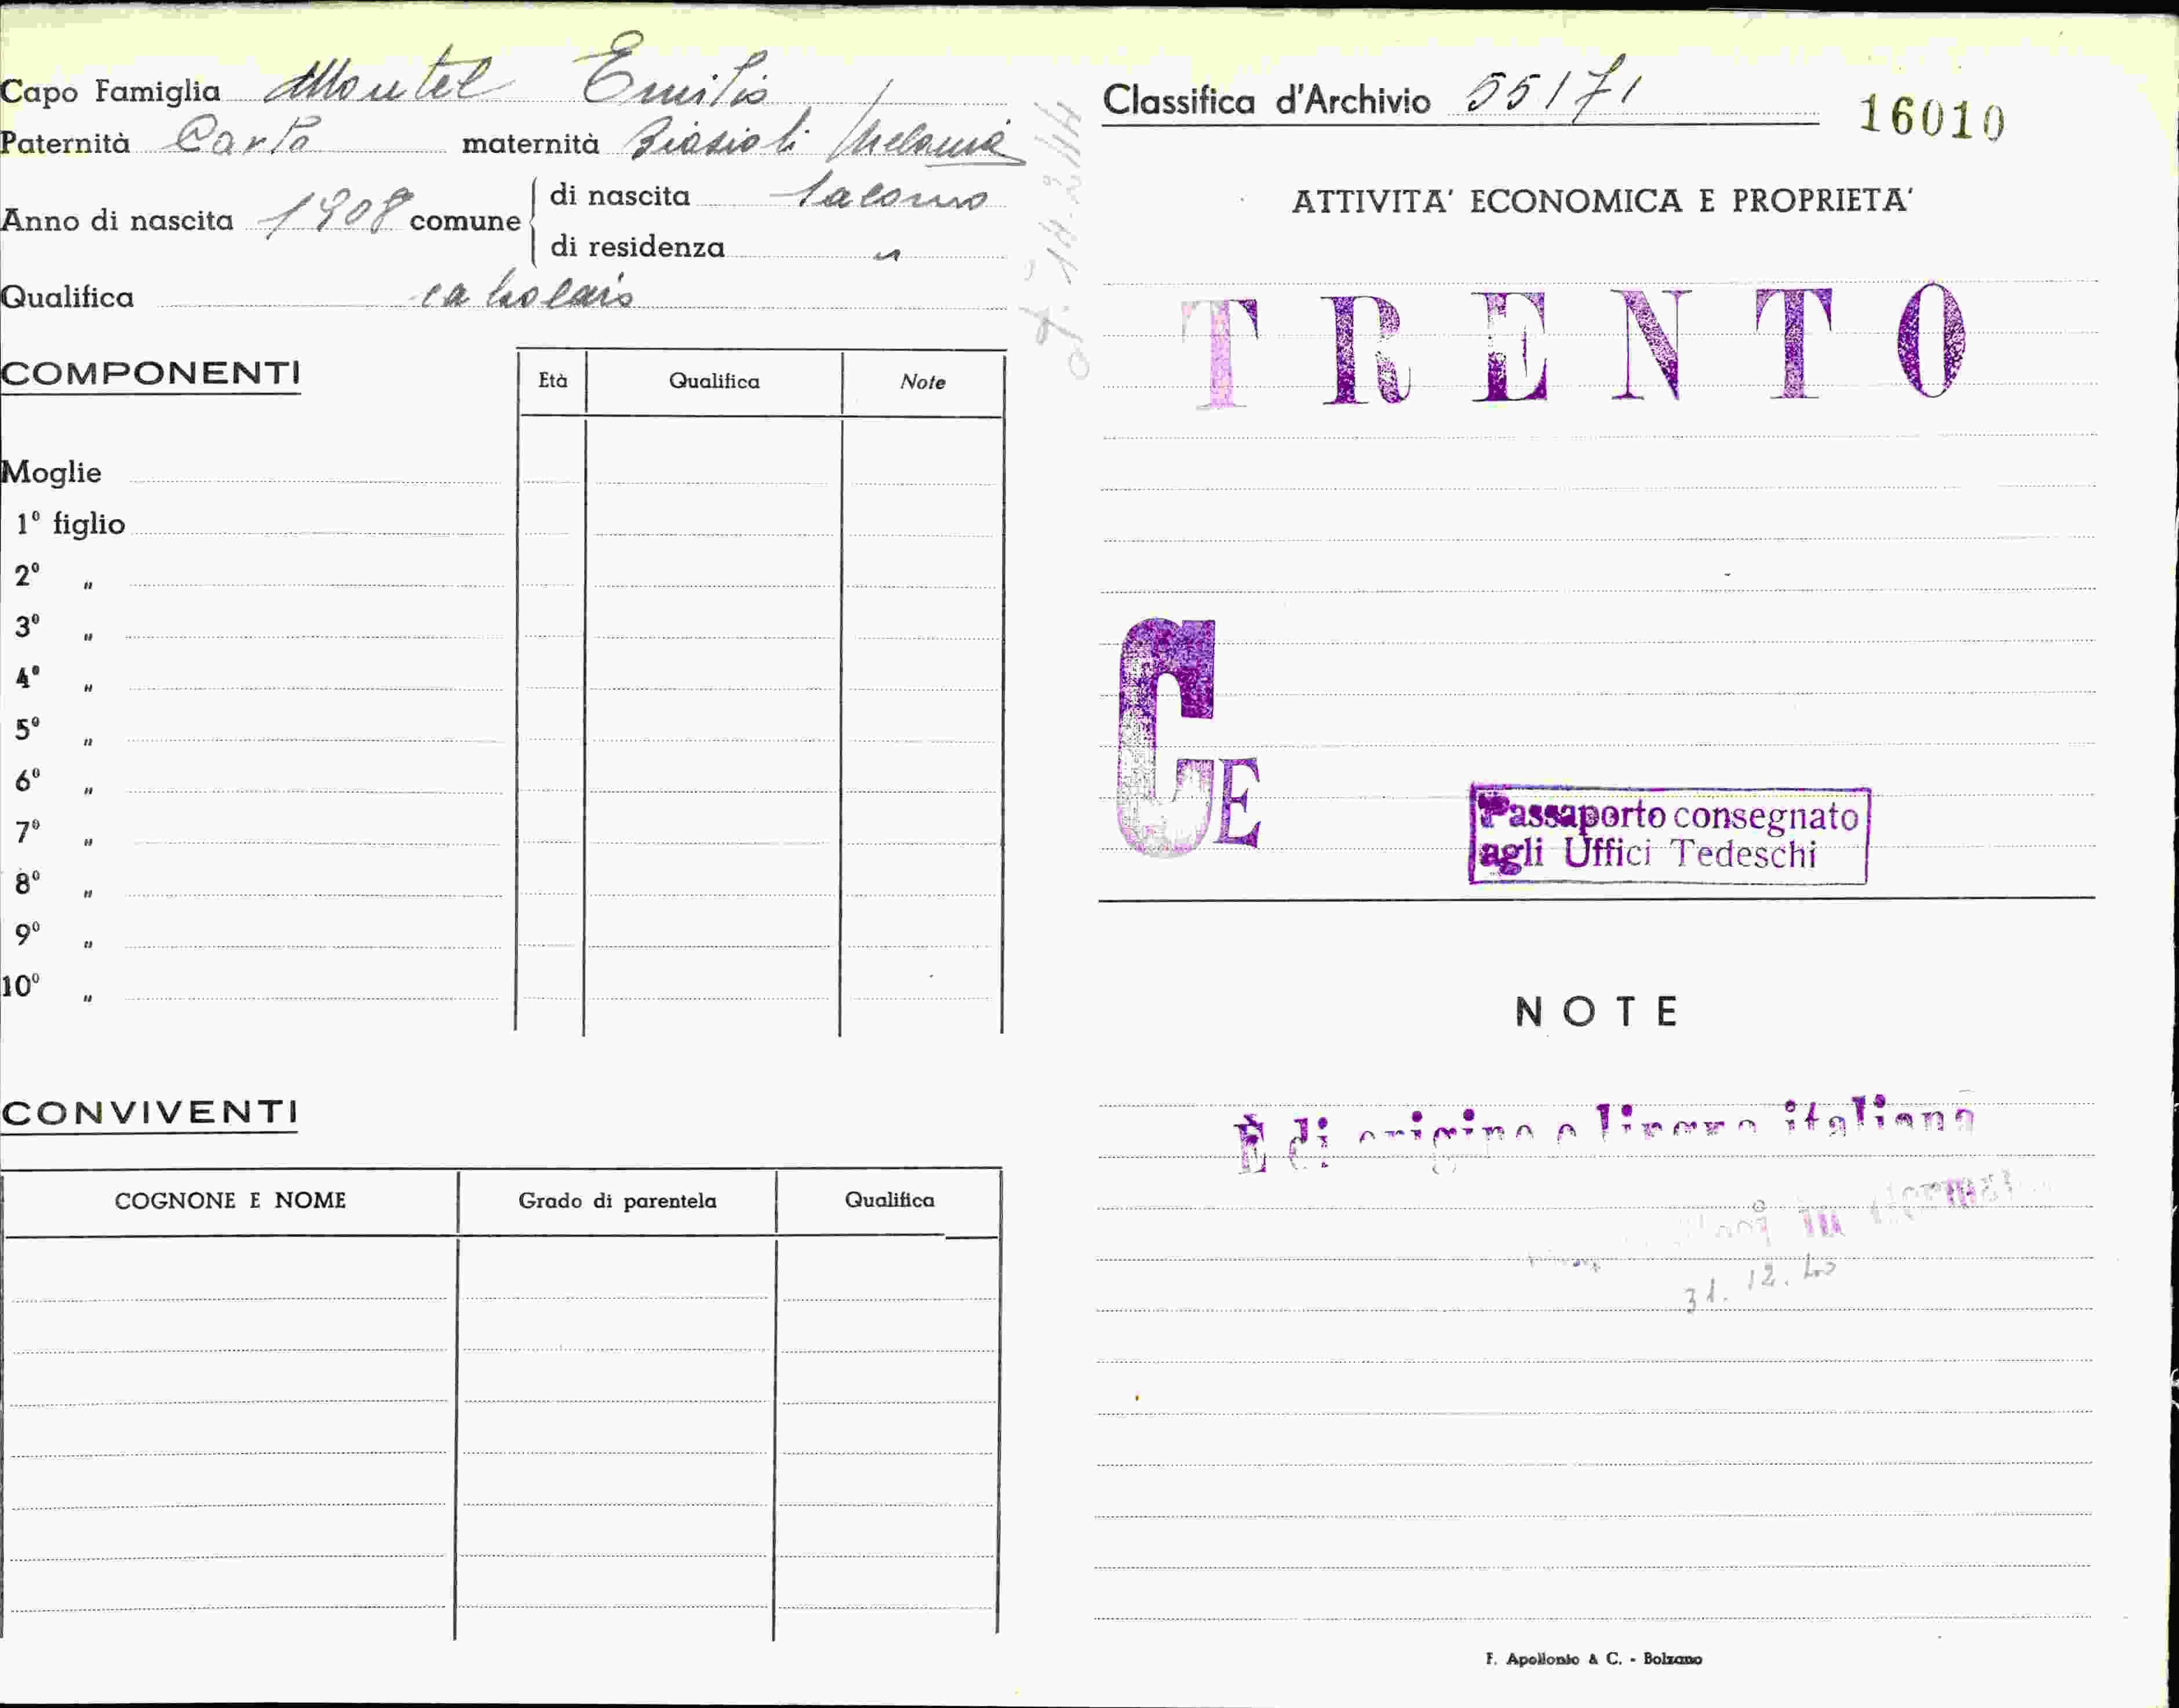 Capo Famiglia Montel Emilio
Paternità Carlo maternità Biasioli Melania
Anno di nascita 1908 comune di nascita Salorno
di residenza "
Qualifica calzolaio
COMPONENTI
Età Qualifica Note
Moglie
1° figlio
2° "
3° "
4° "
5° "
6° "
7° "
8° "
9° "
10° "
CONVIVENTI
COGNONE E NOME Grado di parentela Qualifica
Classifica d'Archivio 55171
16010
ATTIVITA' ECONOMICA E PROPRIETA'
TRENTO
CE
Passaporto consegnato
agli Uffici Tedeschi
NOTE
È di origine e lingua italiana
in
31. 12. 40
F. Apollonio & C. - Bolzano